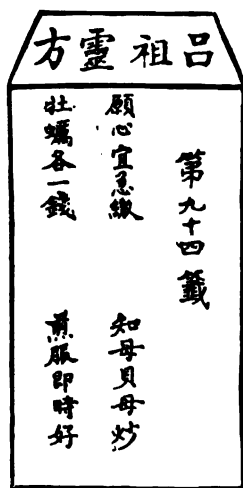 呂祖靈方
第九十四籤
願心宜急繳
知母貝母炒
牡蠣各一錢
煎服即時好